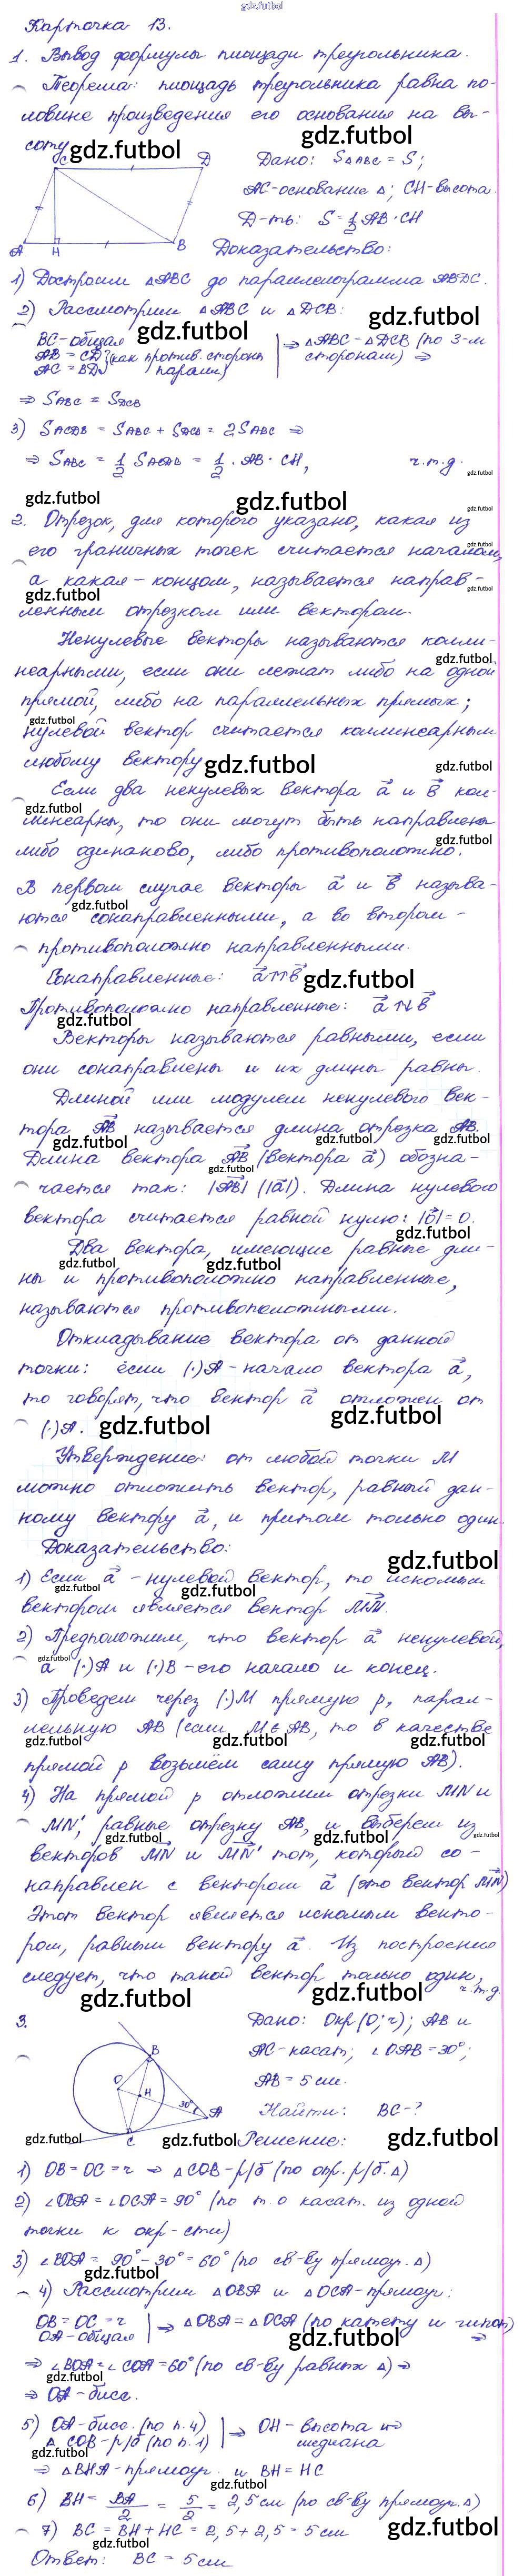 gdz.futbol
Карточка 13.
1. Вывод формулы площади треугольника.
Теорема: площадь треугольника равна по-
ловине произведения его основания на вы-
соту
gdz.futbol
gdz.futbol
C D
Дано: S△ABC = S;
AC - основание △; CH - высота.
Д-ть: S = 1/2 AB · CH
A H B
Доказательство:
1) Достроим △ABC до параллелограмма ABDC.
2) Рассмотрим △ABC и △DCB:
gdz.futbol
gdz.futbol
BC - общая
AB = CD (как против. стороны
AC = BD паралл.)
⇒ △ABC = △DCB (по 3-м
сторонам) ⇒
⇒ SABC = SDCB
3) SACDB = SABC + SDCB = 2SABC ⇒
⇒ SABC = 1/2 SACDB = 1/2 · AB · CH, ч.т.д.
gdz.futbol
gdz.futbol
gdz.futbol
gdz.futbol
2. Отрезок, для которого указано, какая из
его граничных точек считается началом,
gdz.futbol
а какая - концом, называется направ-
gdz.futbol
gdz.futbol
ленным отрезком или вектором.
Ненулевые векторы называются колли-
неарными, если они лежат либо на одной
gdz.futbol
прямой, либо на параллельных прямых;
gdz.futbol
нулевой вектор считается коллинеарным
любому вектору
gdz.futbol
gdz.futbol
Если два ненулевых вектора a⃗ и b⃗ кол-
gdz.futbol
линеарны, то они могут быть направлены
gdz.futbol
либо одинаково, либо противоположно.
В первом случае векторы a⃗ и b⃗ называ-
gdz.futbol
ются сонаправленными, а во втором -
противоположно направленными.
Сонаправленные: a⃗ ↑↑ b⃗
gdz.futbol
Противоположно направленные: a⃗ ↑↓ b⃗
gdz.futbol
Векторы называются равными, если
они сонаправлены и их длины равны.
Длиной или модулем ненулевого век-
тора AB⃗ называется длина отрезка AB.
gdz.futbol
gdz.futbol
gdz.futbol
Длина вектора AB⃗ (вектора a⃗) обозна-
gdz.futbol
чается так: |AB⃗| (|a⃗|). Длина нулевого
вектора считается равной нулю: |0⃗| = 0.
gdz.futbol
Два вектора, имеющие равные дли-
gdz.futbol
gdz.futbol
ны и противоположно направленные,
называются противоположными.
Откладывание вектора от данной
точки: если (·)A - начало вектора a⃗,
то говорят, что вектор a⃗ отложен от
(·)A.
gdz.futbol
gdz.futbol
Утверждение: от любой точки M
можно отложить вектор, равный дан-
ному вектору a⃗, и притом только один.
Доказательство:
gdz.futbol
1) Если a⃗ - нулевой вектор, то искомым
gdz.futbol
gdz.futbol
вектором является вектор MM⃗.
2) Предположим, что вектор a⃗ ненулевой,
gdz.futbol
а (·)A и (·)B - его начало и конец.
3) Проведем через (·)M прямую p, парал-
лельную AB (если M∈AB, то в качестве
gdz.futbol
gdz.futbol
gdz.futbol
прямой p возьмём саму прямую AB).
4) На прямой p отложим отрезки MN и
MN', равные отрезку AB, и выберем из
gdz.futbol
gdz.futbol
gdz.futbol
векторов MN⃗ и MN'⃗ тот, который со-
направлен с вектором a⃗ (это вектор MN⃗)
Этот вектор является искомым векто-
ром, равным вектору a⃗. Из построения
следует, что такой вектор только один,
ч.т.д.
gdz.futbol
gdz.futbol
3.
Дано: Окр(O; r); AB и
AC - касат; ∠OAB = 30°;
AB = 5 см.
Найти: BC - ?
B O H 30° A C
gdz.futbol
gdz.futbol
gdz.futbol
Решение:
1) OB = OC = r ⇒ △COB - р/б (по опр. р/б. △)
2) ∠OBA = ∠OCA = 90° (по т. о касат. из одной
точки к окр-сти)
3) ∠BOA = 90° - 30° = 60° (по св-ву прямоуг. △)
gdz.futbol
4) Рассмотрим △OBA и △OCA - прямоуг:
OB = OC = r
OA - общая
⇒ △OBA = △OCA (по катету и гипот)
⇒
gdz.futbol
⇒ ∠BOA = ∠COA = 60° (по св-ву равных △) ⇒
gdz.futbol
⇒ OA - бисс.
5) OA - бисс. (по п. 4)
△COB - р/б (по п. 1)
⇒ OH - высота и
медиана
gdz.futbol
⇒ △BHA - прямоуг. и BH = HC
gdz.futbol
6) BH = BA/2 = 5/2 = 2,5 см (по св-ву прямоуг. △)
7) BC = BH + HC = 2,5 + 2,5 = 5 см
gdz.futbol
gdz.futbol
Ответ: BC = 5 см